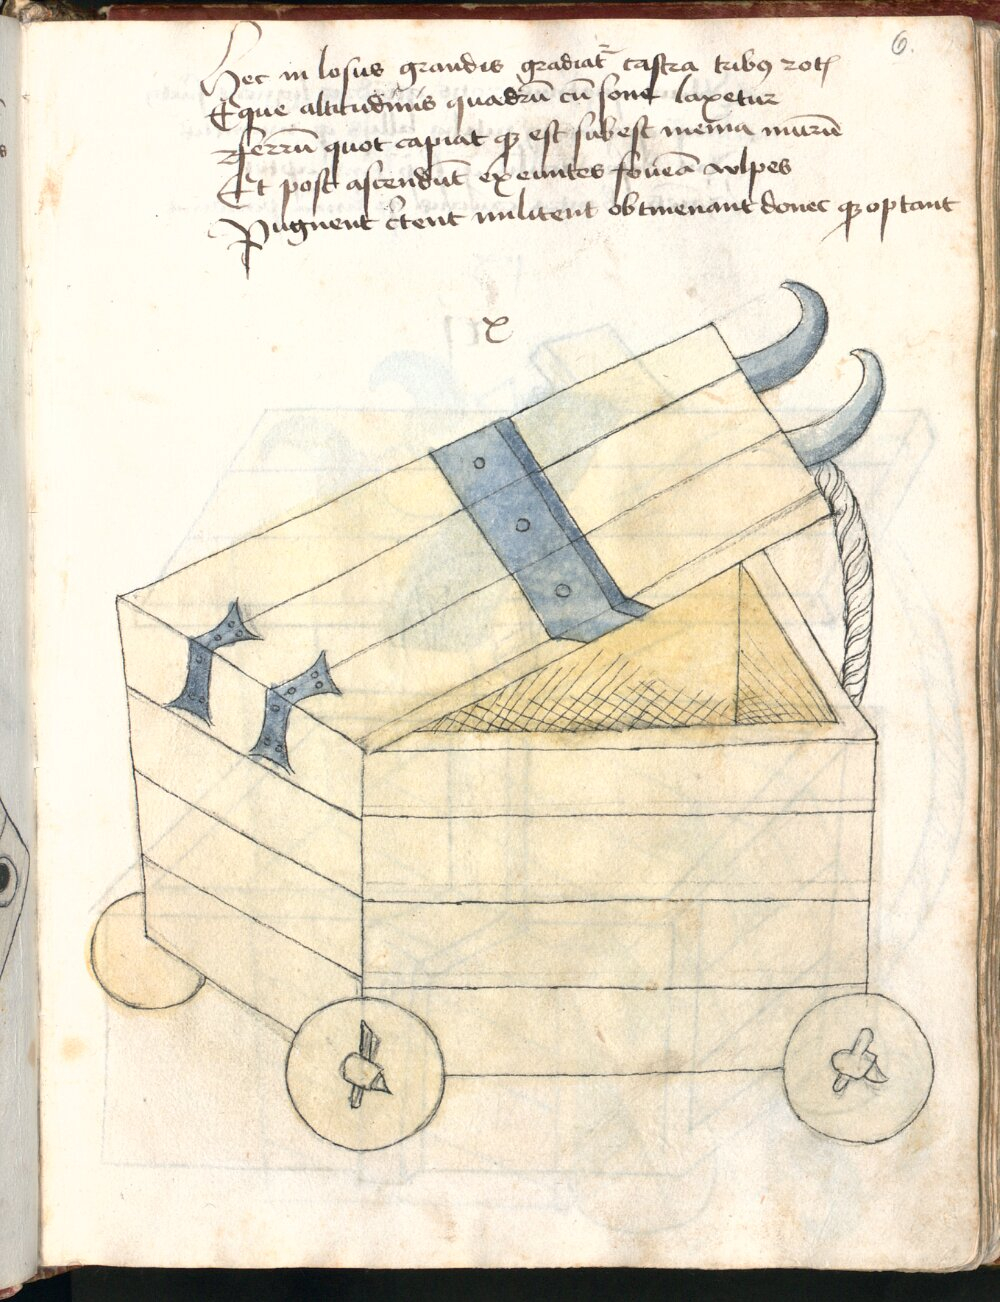 6.
Hec in losus grandis gradiat᷑ castra tribꝯ rotꝭ
Eque altitudinis quadrū cū fone laxetur
Ferrū quot capiat ꝙ est subest menia murū
Et post ascendūt exeuntes foueā vulpes
Pugnent c̄tent militent obtineant donec ꝙ optant
x